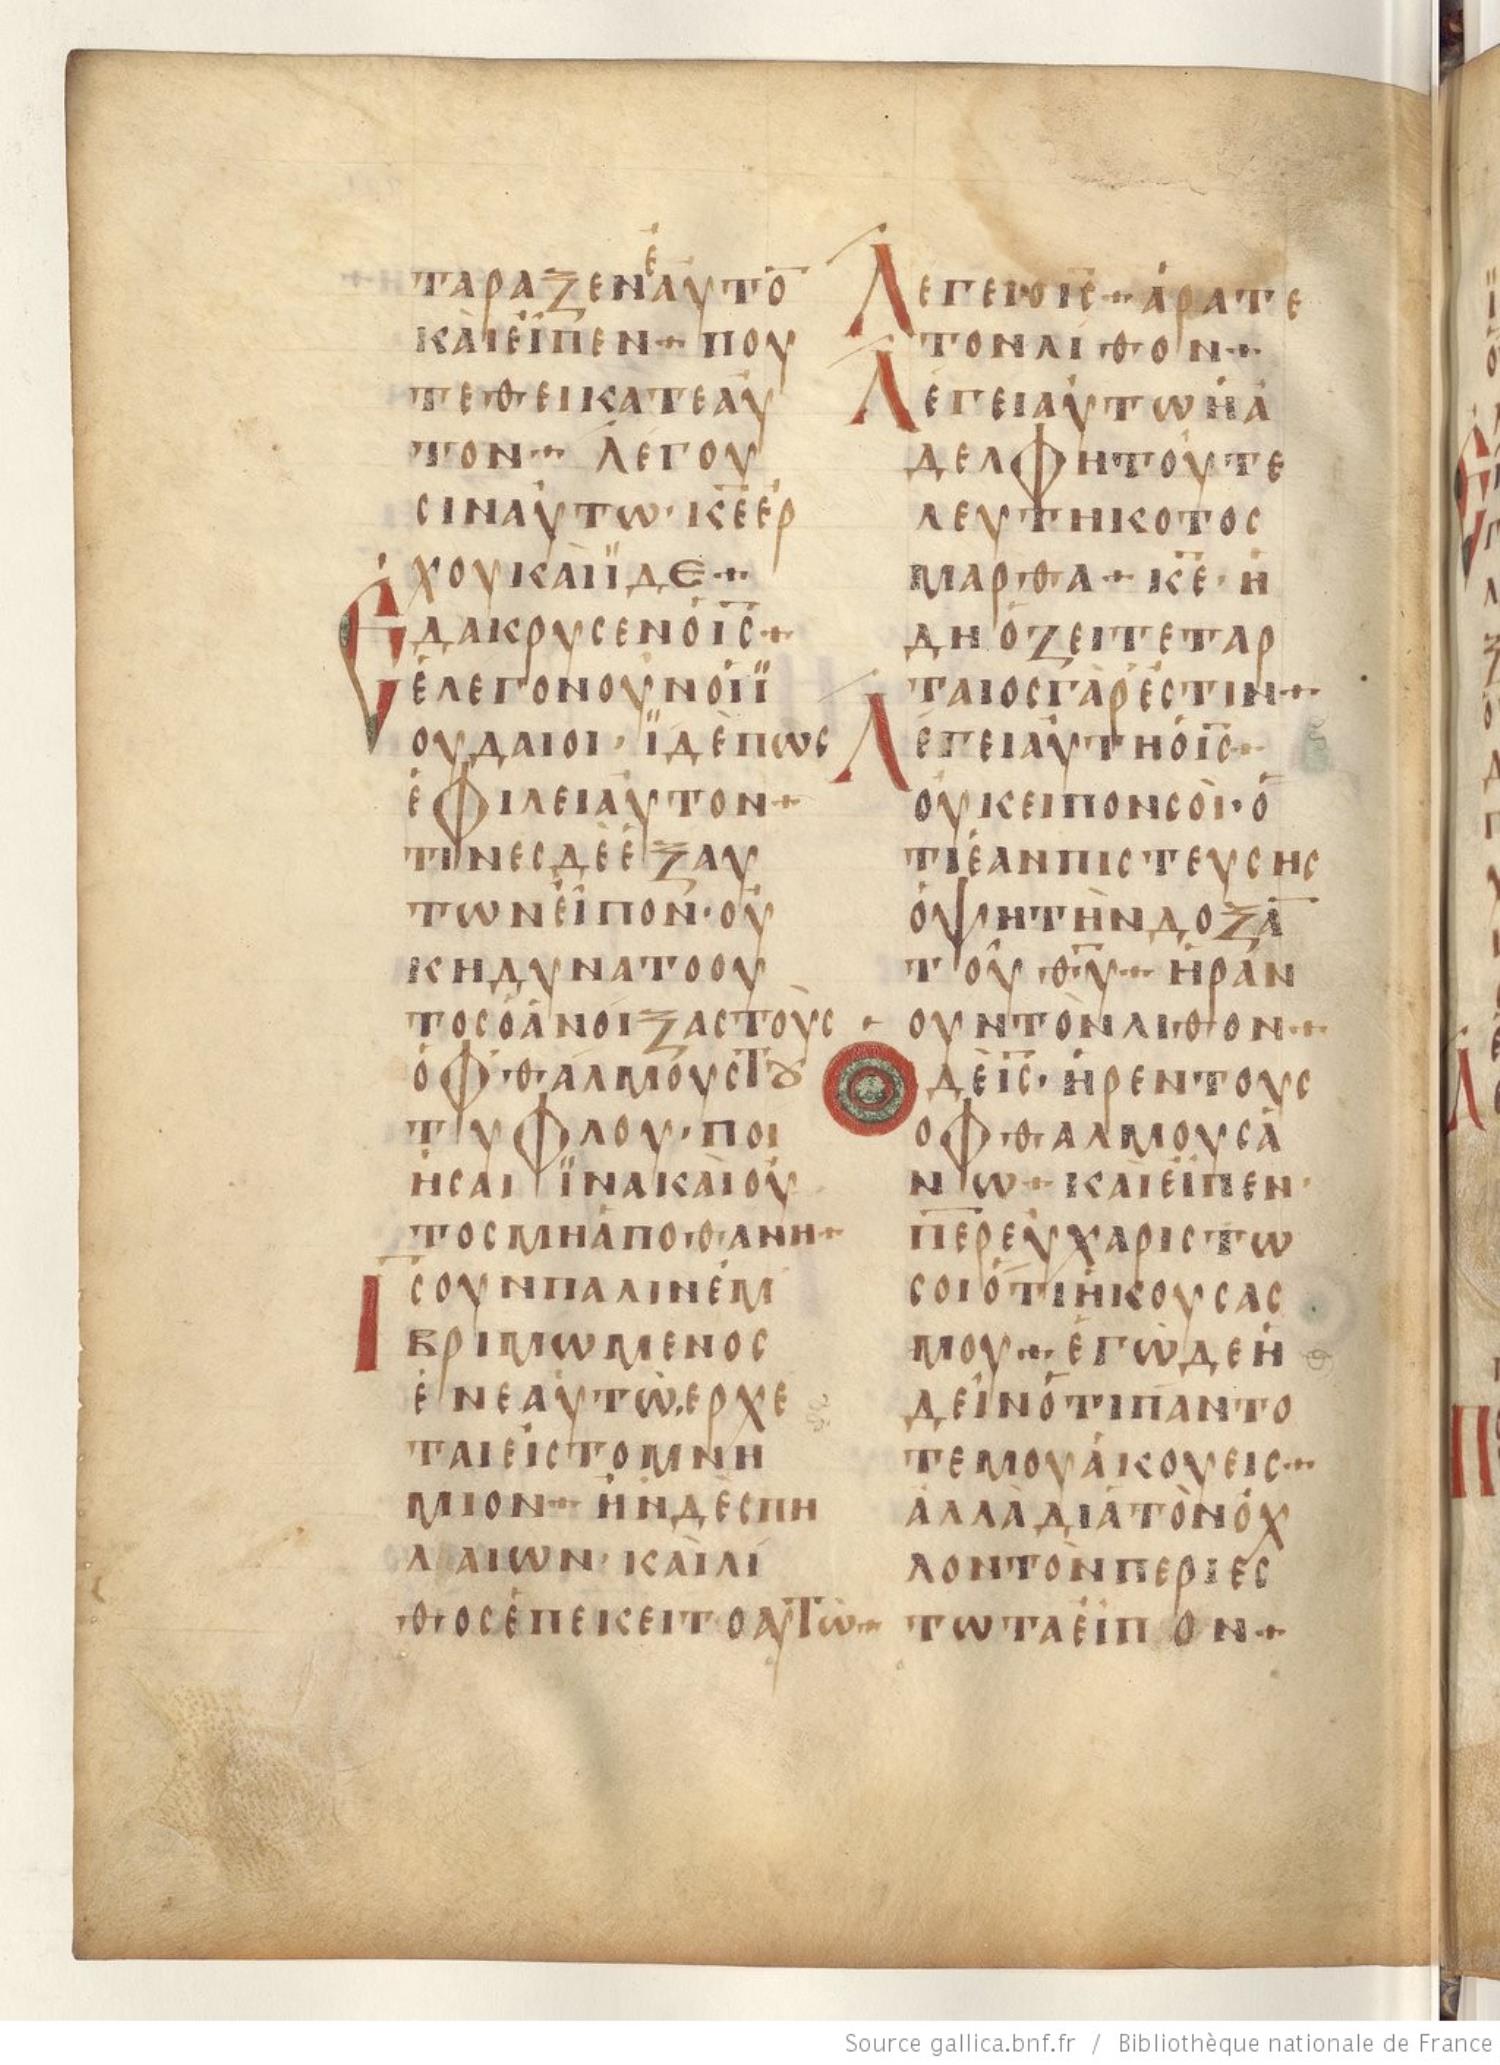 ταραξενἑαυτο̅
καὶεἶπεν+ που
τεθεικατεαὐ
τον+ λέγου
σιναὐτω· κ̅ε̅ἐρ
χουκαὶϊδε+
Ἐδακρυσενὁι̅ς̅+
ἐλεγονουνὁιϊ
ουδαιοι· ϊδὲπως
ἐφιλειαὐτον+
τινεςδὲἐξαυ
τωνεἶπον· οὐ
κηδυνατοου
τοςὁἀνοιξαςτοὺς
ὀφθαλμούςτȣ
τυφλου· ποι
ἠσαι ϊνακαὶοὑ
τοςμηἀποθανη+
Ι̅ς̅ουνπαλινἐμ
βριμωμενος
ἐνεαὐτῶ, ερχε
ταιεἰςτομνη
μιον+ ἠνδὲσπη
λαιων· καὶλί
θοςἐπεκειτοαὐτῶ+
Λεγειὁι̅ς̅+ ἀρατε
τονλίθον+
Λεγειαὐτωἡἀ
δελφητοὑτε
λευτηκοτος
μαρθα+ κ̅ε̅· ἠ
δηὀζειτεταρ
ταιοςγὰρἐστιν+
Λεγειαὐτηὁι̅ς̅+
οὐκειπονσὸι· ὅ
τιἐανπιστευσης
ὀψητὴνδοξα̅
τοῦθ̅υ̅+ ἠρὰν
ουντὸνλιθον+
Ὁδὲι̅ς̅· ἠρεντους
οφθαλμουσἀ
νω+ καὶεἶπεν·
π̅ε̅ρ̅εὐχαριστω
σοιὁτιἠκουσας
μου+ ἐγὼδεἠ
δεἰνὅτιπαντο
τεμουἀκουεις+
ἀλλὰδιὰτὸνὀχ
λοντὸνπεριες
τωταεἶπον+
Source gallica.bnf.fr / Bibliothèque nationale de France